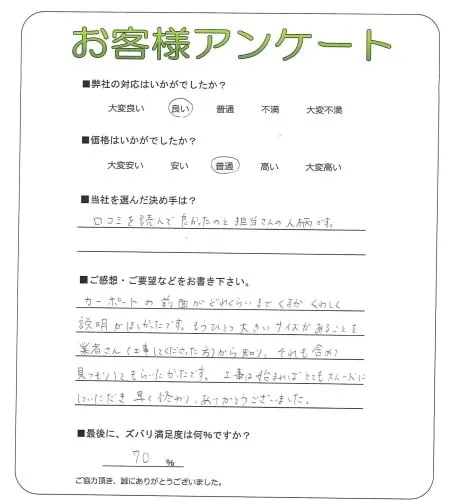 お客様アンケート
■弊社の対応はいかがでしたか？
大変良い 良い 普通 不満 大変不満
■価格はいかがでしたか？
大変安い 安い 普通 高い 大変高い
■当社を選んだ決め手は？
口コミを読んで良かったのと担当さんの人柄です。
■ご感想・ご要望などをお書き下さい。
カーポートの前面がどれくらいまでくるかくわしく
説明がほしかったです。もうひとつ大きいサイズがあることを
業者さん(工事してくださった方)から知り、それも含めて
見つもりしてもらいたかったです。工事は始まればとても
していただき早く終わり、ありがとうございました。
■最後に、ズバリ満足度は何％ですか？
70 %
ご協力頂き、誠にありがとうございました。